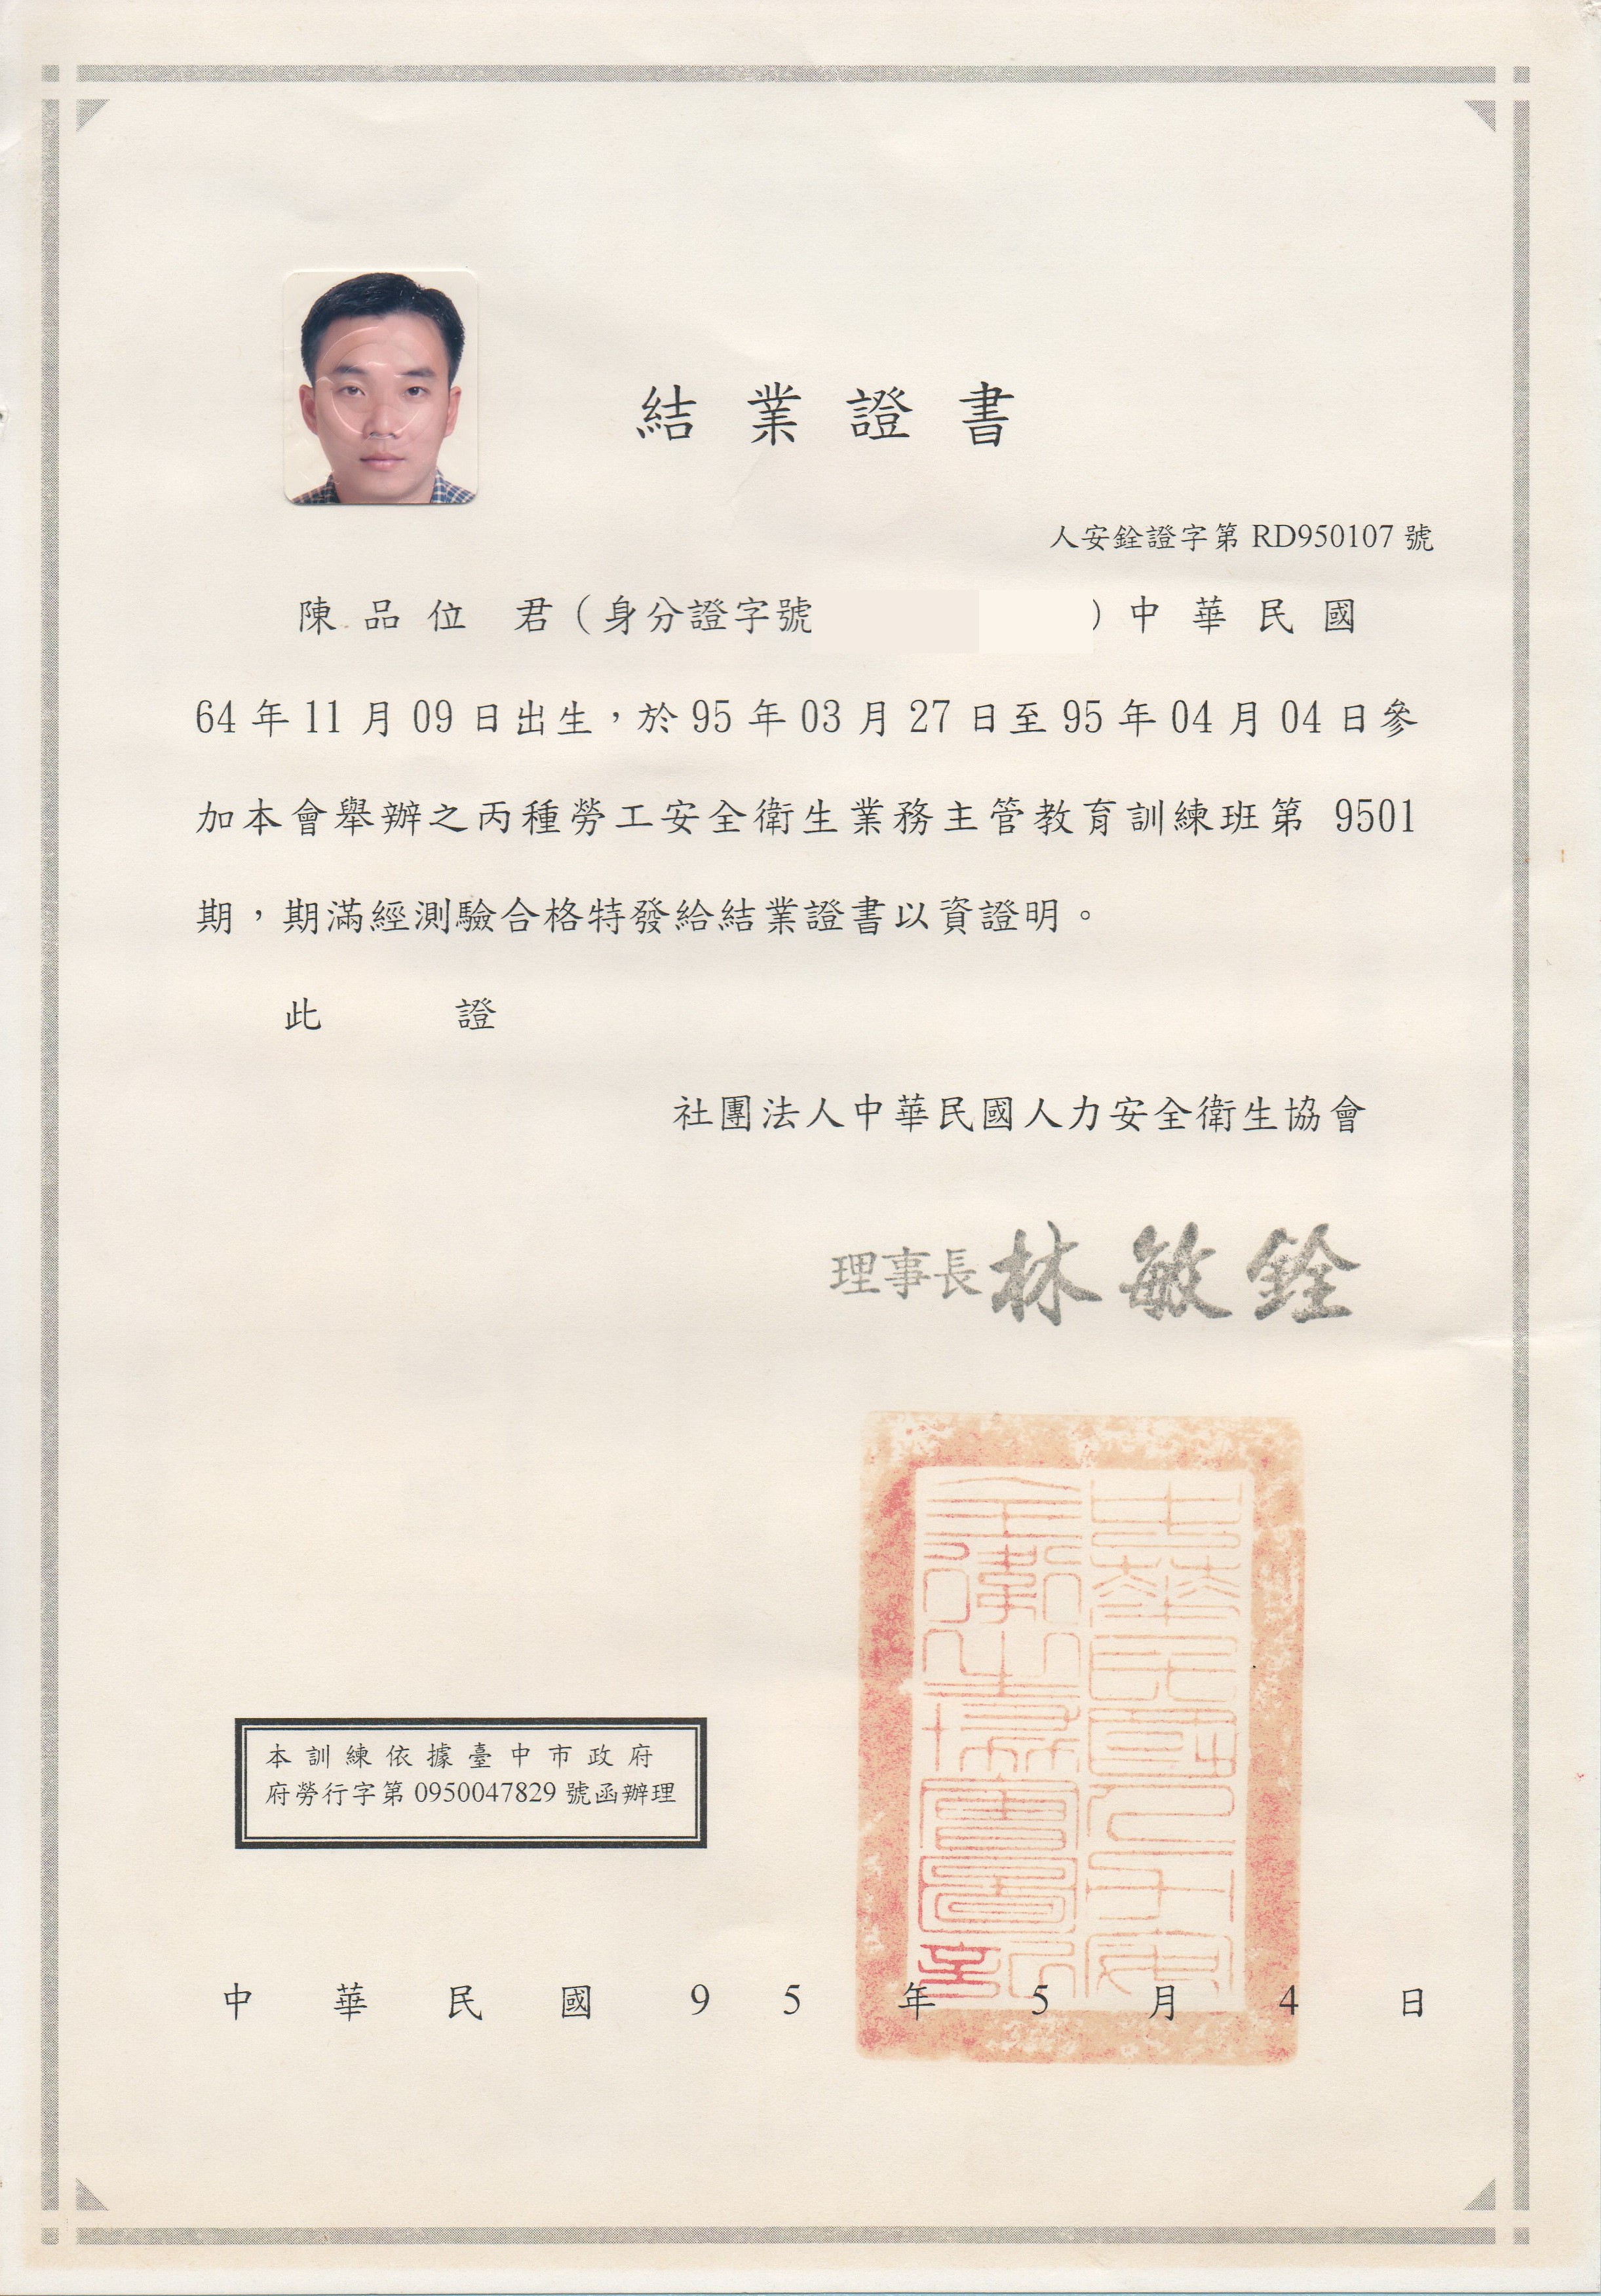 結業證書
人安銓證字第 RD950107 號
陳品位 君（身分證字號 ）中華民國
64 年 11 月 09 日出生，於 95 年 03 月 27 日至 95 年 04 月 04 日參
加本會舉辦之丙種勞工安全衛生業務主管教育訓練班第 9501
期，期滿經測驗合格特發給結業證書以資證明。
此 證
社團法人中華民國人力安全衛生協會
理事長 林敏銓
中華民國人力安
全衛生協會圖記
本訓練依據臺中市政府
府勞行字第 0950047829 號函辦理
中華民國 95 年 5 月 4 日